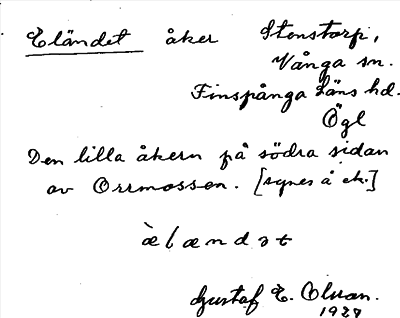 Eländet åker Stenstorp,
Vånga sn.
Finspånga läns hd.
Ögl
Den lilla åkern på södra sidan
av Orrmossen. [synes å ek.]
è l æ n d ə t
Gustaf E. Olson.
1927